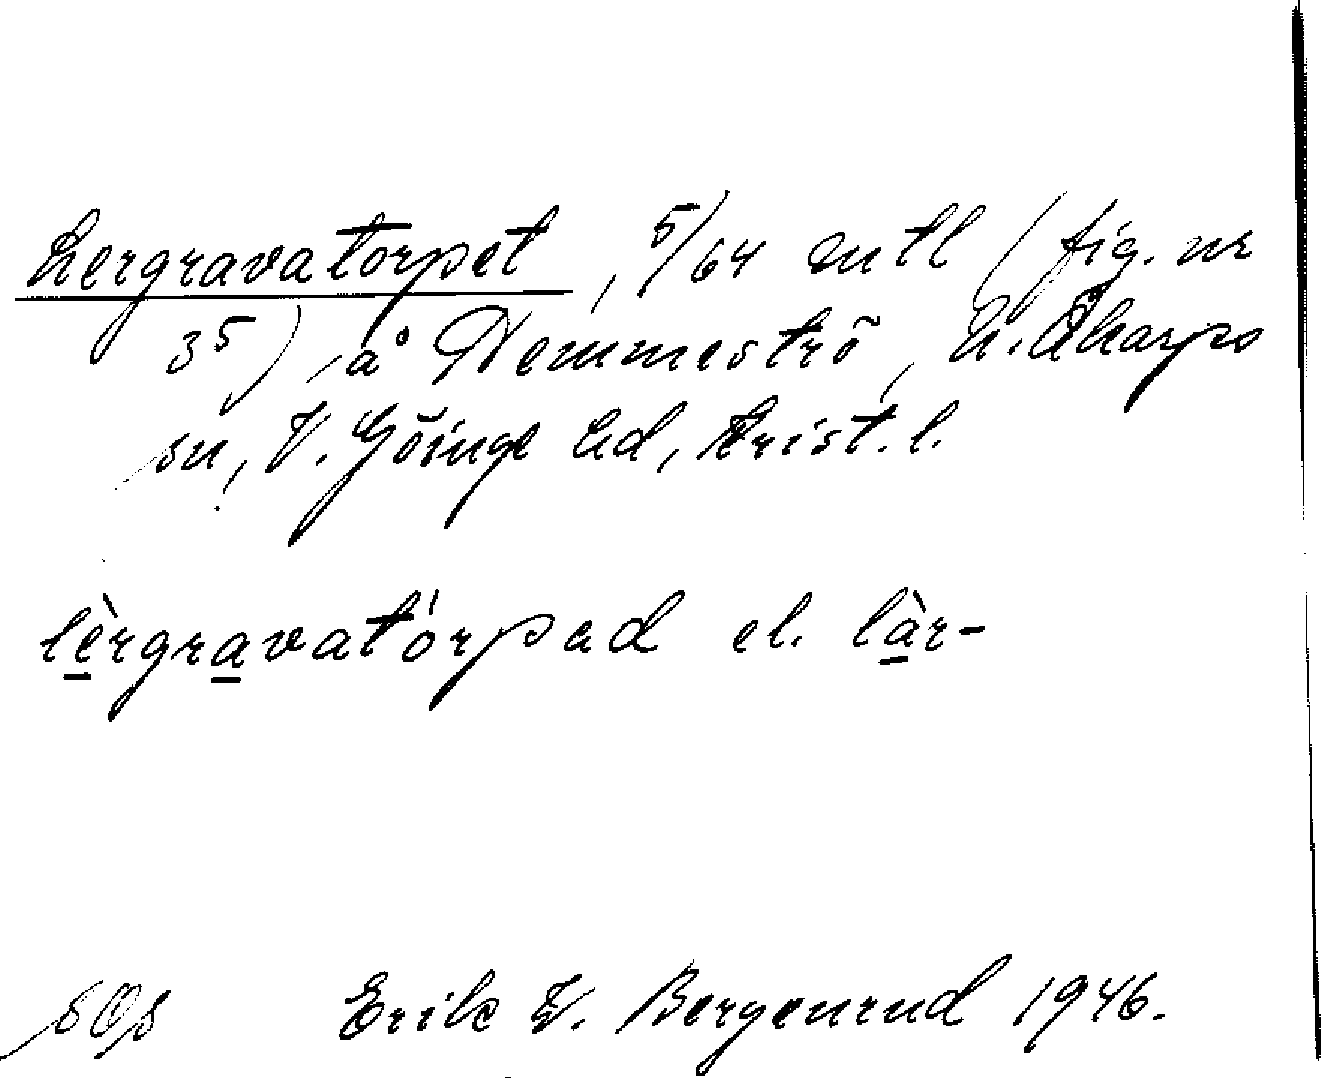 Lergravatorpet, 5/64 mtl (fig. nr
3⁵) å Nemmeströ, N. Åkarps
sn, V. Göinge hd, Krist. l.
lèrgravatórpad el. làr-
SOs Erik V. Bergenrud 1946.